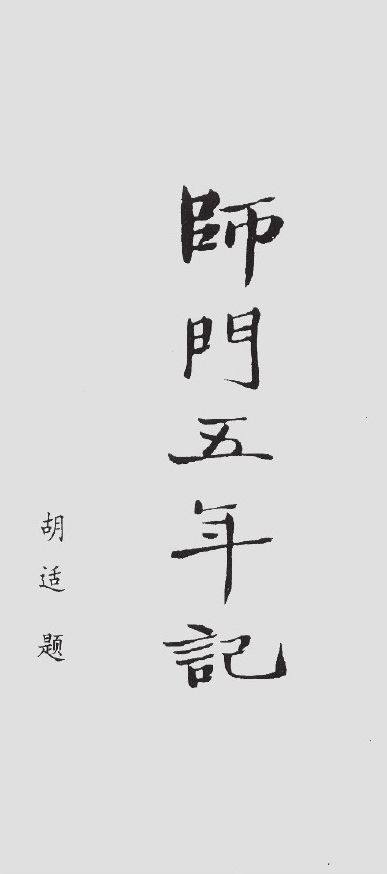 師門五年記
胡适题